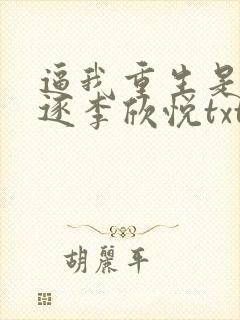 逼我重生是
逐李欣悦txt
胡丽平